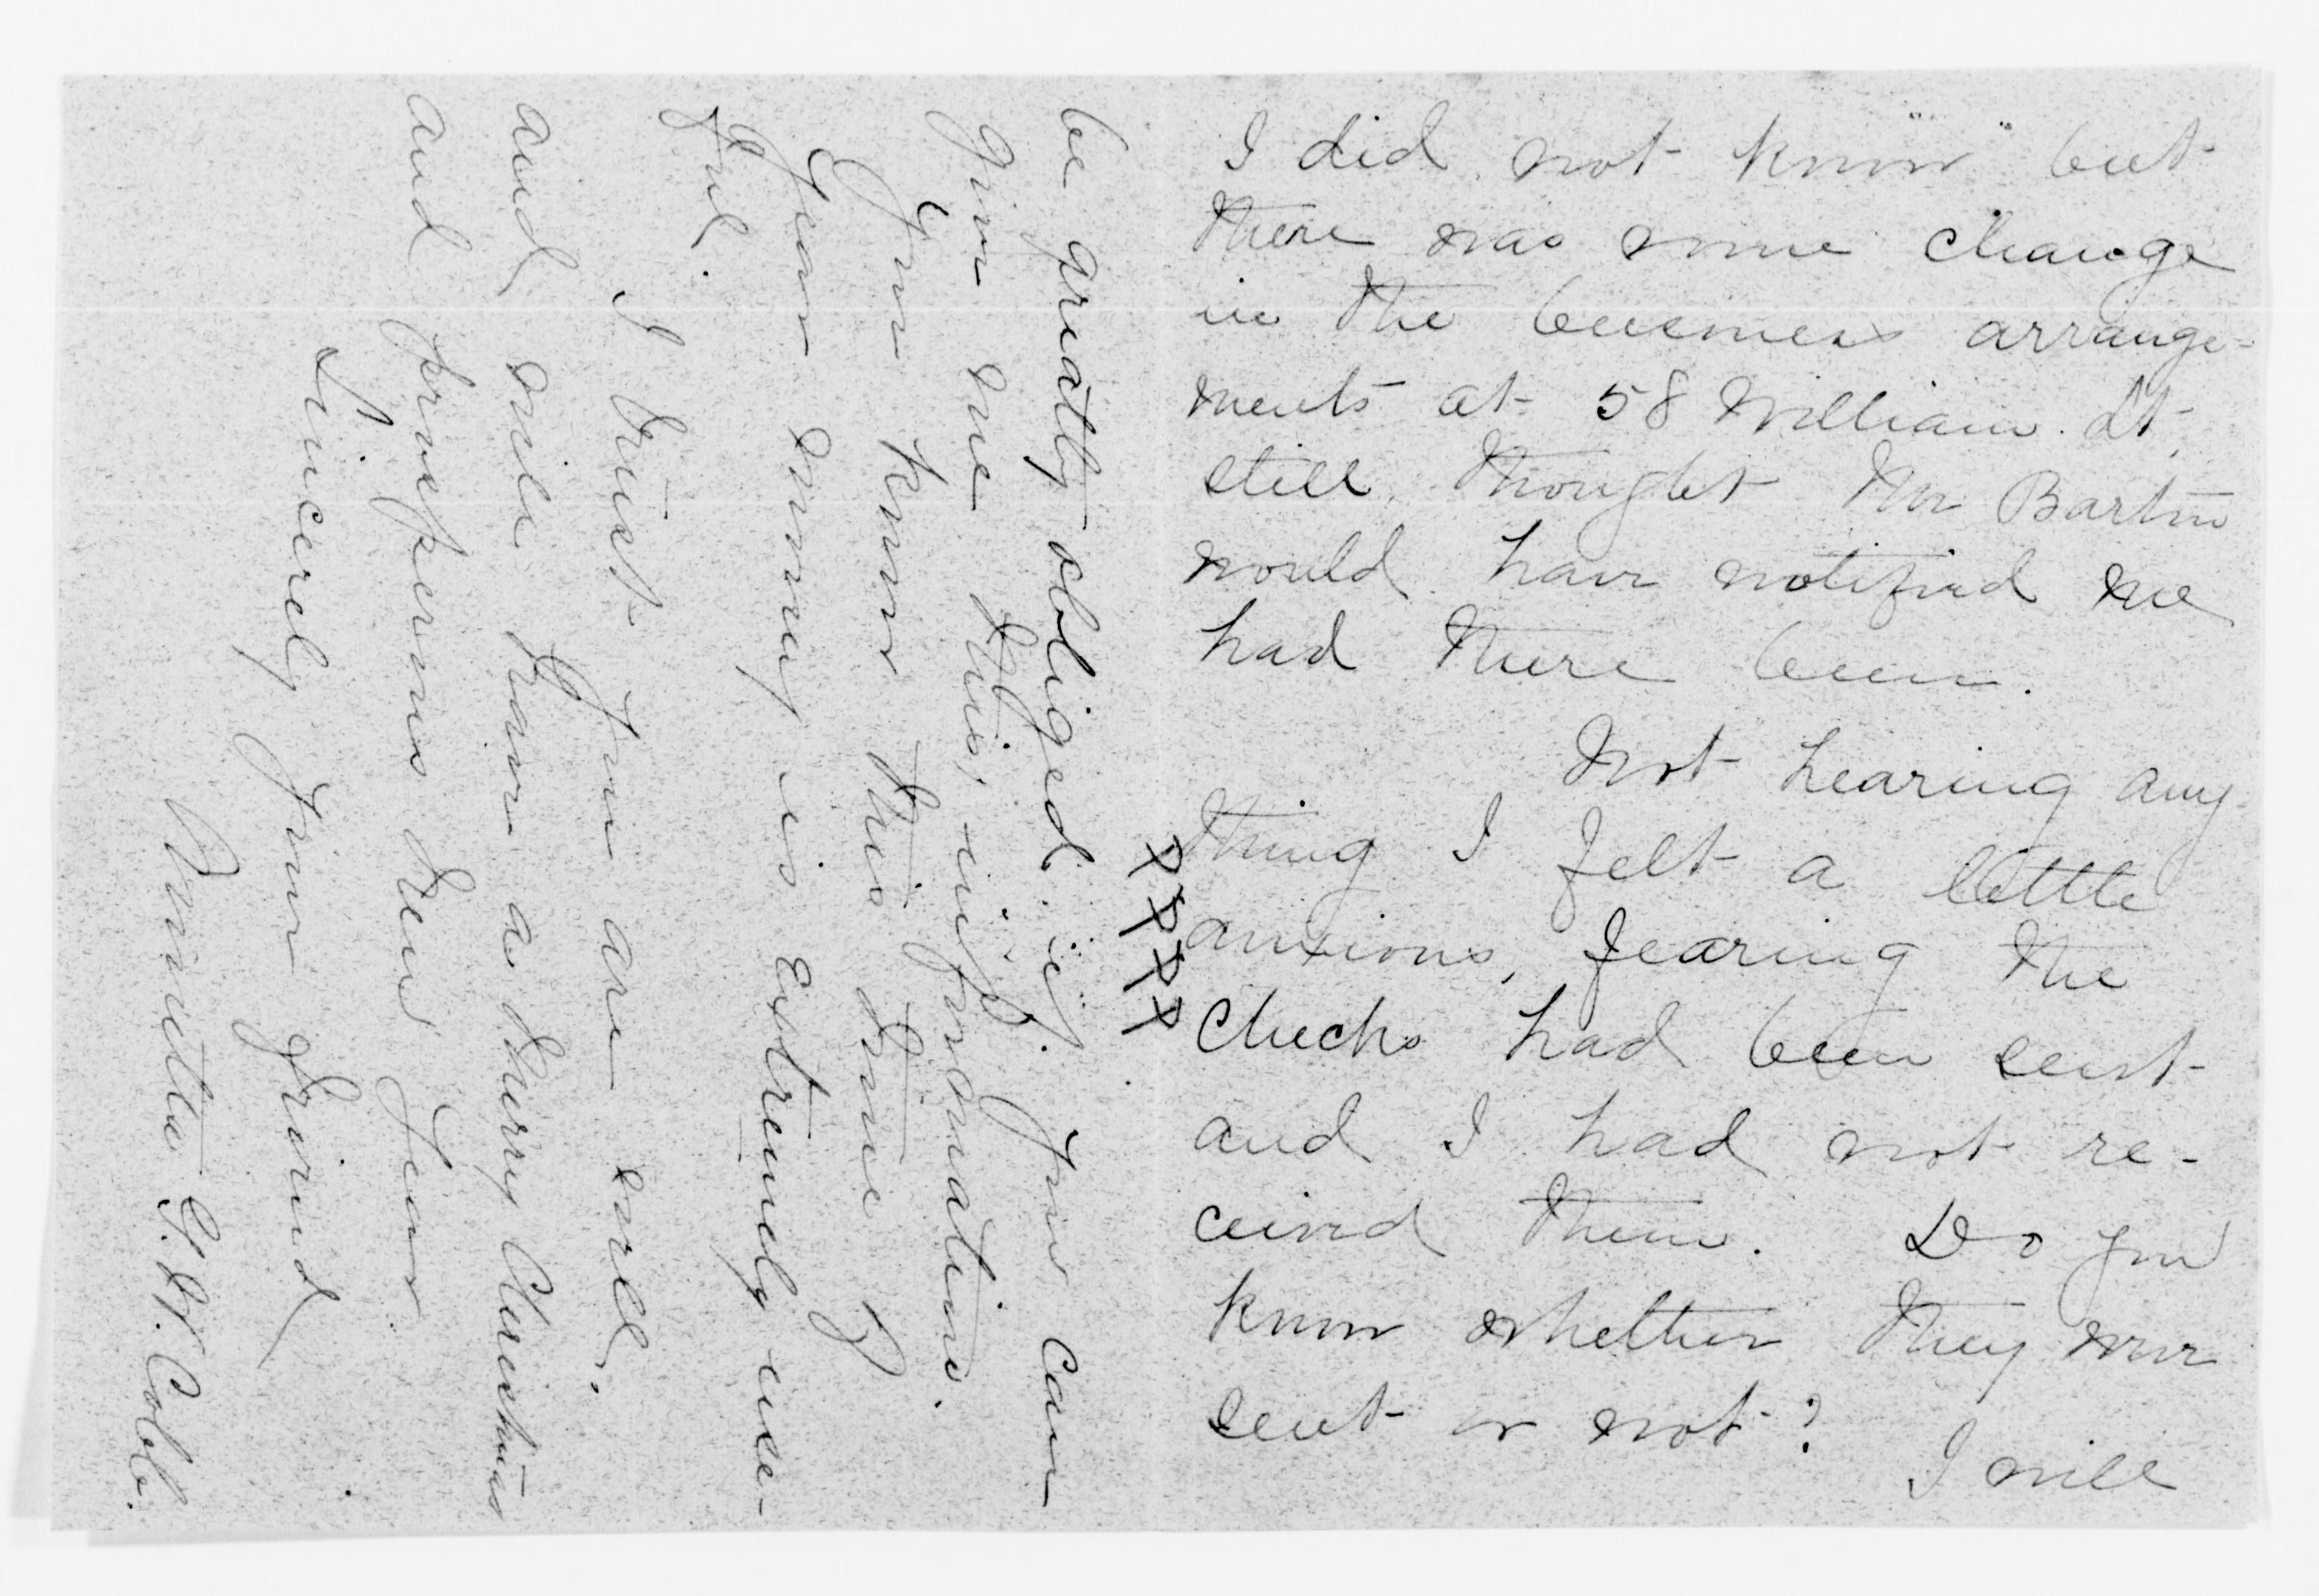 I did not know but
there was some change
in the business arrange-
ments at 58 William St,
still, thought Mr Barton
would have notified me
had there been.
Not hearing any-
thing I felt a little
anxious, fearing the
checks had been sent
and I had not re-
ceived them. Do you
know whether they were
sent or not? I will
be greatly obliged if you can
give me this, information.
You know this time of
year money is extremely use-
ful.
I trust you are well,
and will have a Merry Christmas
and prosperous New Year
Sincerely your friend
Annetta G. W. Cobb.
XXXX